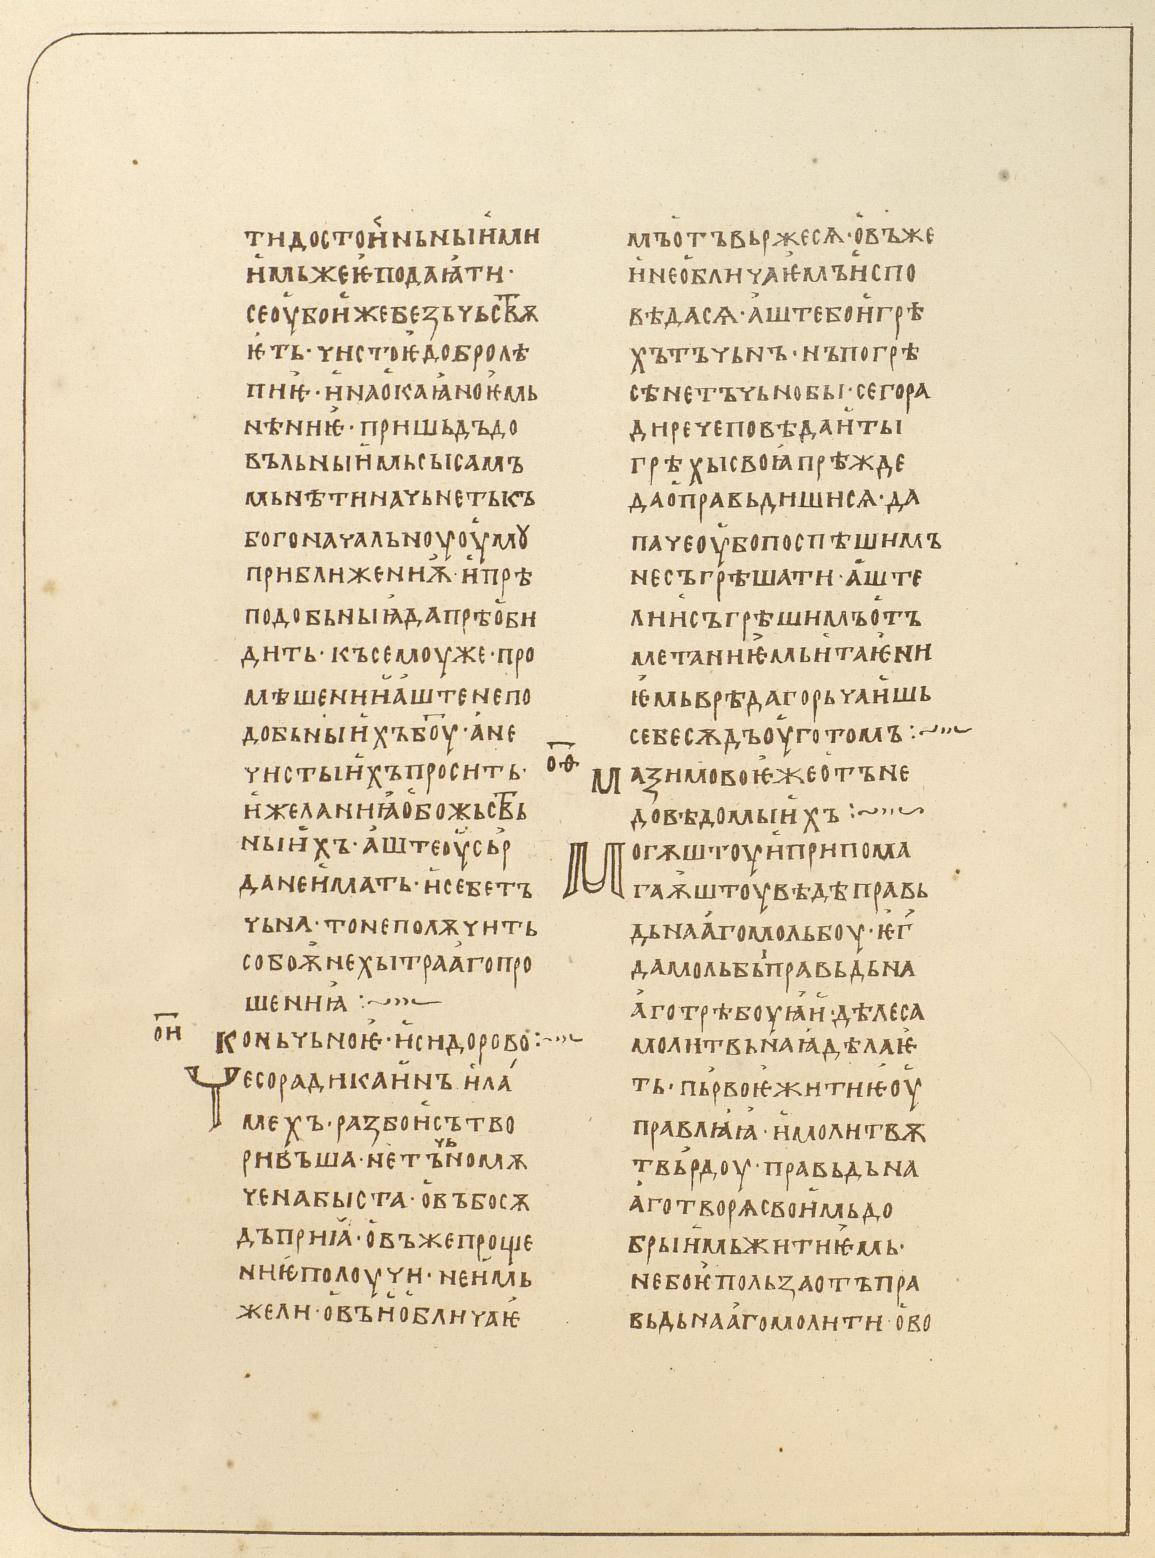 тидостоиньныимми
имьжеѥподаꙗти·
сеоубоижебезъчьств҃ꙗ
ѥть·чистоѥдобролѣ
пиѥ·инаокаꙗноѥмь
нѣниѥ·пришьдъдо
въльныимьсысамъ
мьнѣтиначьнетыкъ
богоначальноуоумꙋ
приближениѫ·ипрѣ
подобьныѩдапрѣоби
дить·късемоуже·про
мѣшениианштенепо
добьныихъбо҃у·ане
чистыихъпросить·
ижеланиꙗобожьств҃ь
ныихъ·аштеоусьр
данеимать·исебетъ
чьна·тонеполѫчить
собоѭнехытраагопро
шениꙗ:~〃~
о҃и
коньчьноѥ·исидорово:~〃~
Чесорадикаинъ илл҃а
мехъ·разбоисътво
ривъша·нетъчьномѫ
ченабыста·овъбосѫ
дъприꙗ·овъжепроще
ниѥполоучи·неимь
жели·овъиобличаѥ
мъотъвьржесѧ·овъже
инеобличаѥмъиспо
вѣдасѧ·аштебоигрѣ
хътъчьнъ·нъпогрѣ
сѣнетъчьнобы·сегора
диречеповѣдаиты
грѣхысвоꙗпрѣжде
даоправьдишисѧ·да
пачеоубопоспѣшимъ
несъгрѣшати·аште
лиисъгрѣшимъотъ
метаниѥмьитаѥни
ѥмьврѣдагорьчаишь
себесѫдъоуготомъ:~〃~
о҃ѳ
мазимовоѥжеотъне
довѣдомыихъ:~〃~
Могѫштоуиприпома
гаѭштоувѣдѣправь
дьнаагомольбоу·ѥг
дамольбыправьдьна
аготрѣбоуꙗи·дѣлеса
молитвьнаꙗдѣлаѥ
ть·пьрвоѥжитиѥоу
правлꙗꙗ·имолитвѫ
твьрдоу·правьдьна
аготворѧсвоимьдо
брыимьжитиѥмь·
небоѥпользаотъпра
вьдьнаагомолити·ово